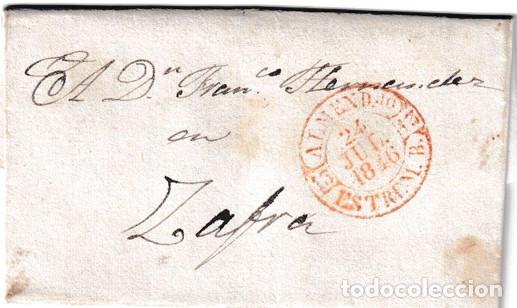 A Dn Franco Hernandez
en
Zafra
ALMENDJO
24
JUL
1846
ESTREM. B.
todocoleccion.net